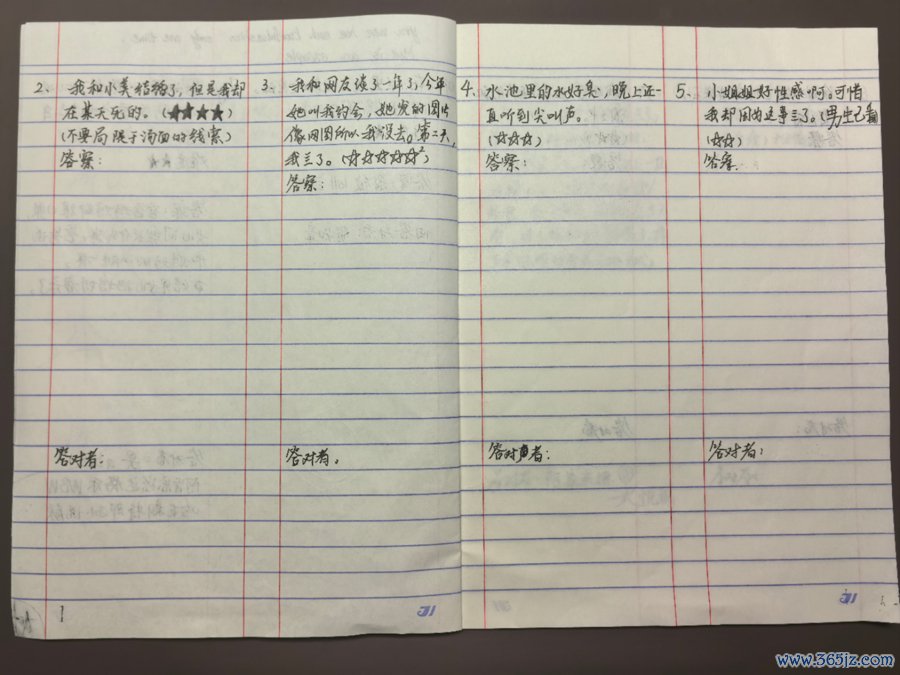 2、我和小美结婚了，但是我却
在某天死的。(★★★★)
(不要局限于汤面的线索)
答案：
答对者：
1
3、我和网友谈了一年了，今年
她叫我约会，她发的图片
像网图所以我没去。第二天，
我三了。(☆☆☆☆☆²)
答案：
答对者。
4、水池里的水好臭，晚上还一
直听到尖叫声。
(☆☆☆)
答案：
答对者：
5、小姐姐好性感啊。可惜
我却因为这事三了。(男生已看
(☆☆)
答案.
答对者：
www.365jz.com